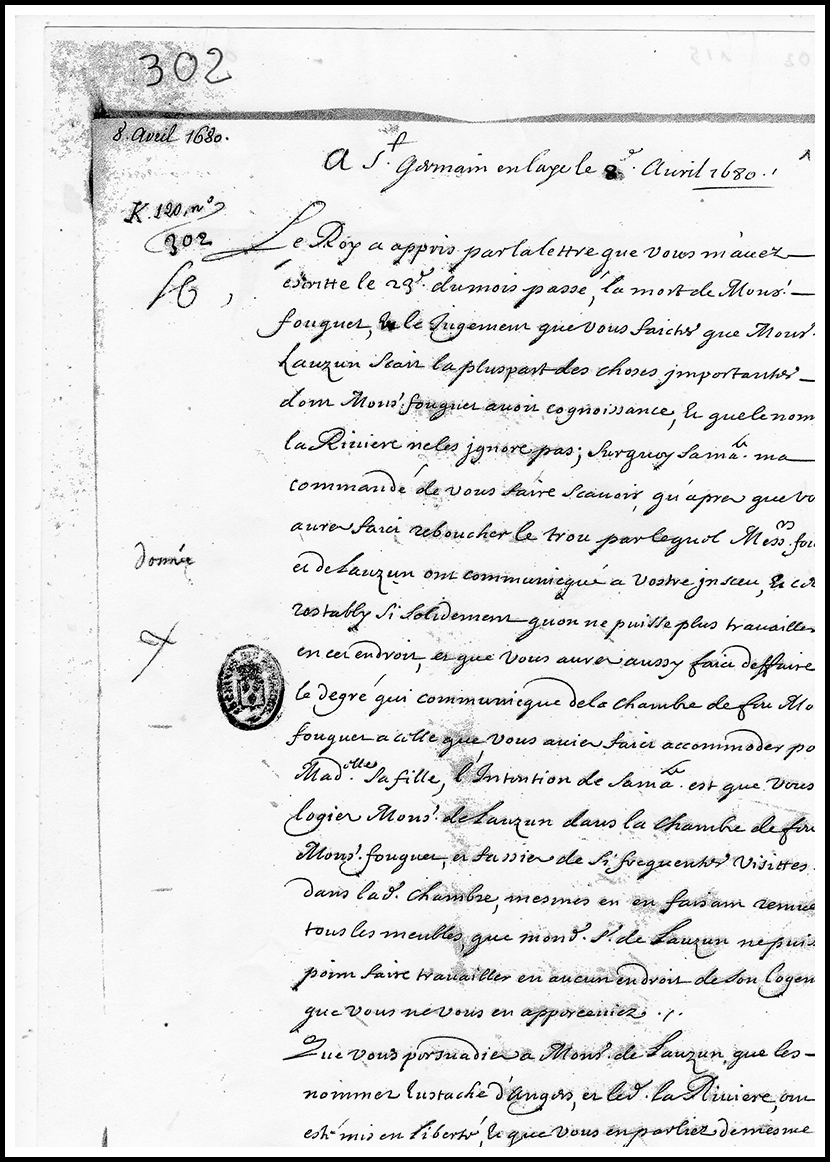 302
8. Avril 1680.
A St. Germain en laye le 8e. Avril 1680.
K. 120, no
302
Le Roy a appris par la lettre que vous m'avez
escritte le 23e. du mois passé, la mort de Monsr.
fouquet, Et le Jugement que vous faictes que Monsr.
Lauzun scait la pluspart des choses jmportantes
dont Monsr. fouquet avoit cognoissance, Et que le nom
la Riviere ne les jgnore pas; surquoy sa matė. ma
commandé de vous faire scavoir, qu'apres que vo
aurez faict reboucher le trou par lequel Messrs. fou
et de Lauzun ont communicqué a vostre jnsceu, Et ce
restably si solidement qu'on ne puisse plus travailler
donnée
en cet endroit, et que vous aurez aussy faict deffaire
le degré qui communicque de la chambre de feu Mo
fouquet a celle que vous aviez faict accommoder po
Madelle. sa fille, l'Intention de sa matė. est que vous
logiez Monsr. de Lauzun dans la chambre de feu
Monsr. fouquet, et fassiez de si frequentes visittes
dans lad. chambre, mesmes en en faisant remue
tous les meubles, que mond. Sr. de Lauzun ne puis
point faire travailler en aucun endroit de son Logem
que vous ne vous en apperceviez ./.
Que vous persuadiez a Monsr. de Lauzun que les
nommez Eustache d'Angers, et led. la Riviere, ont
esté mis en liberté, Et que vous en parliez de mesme